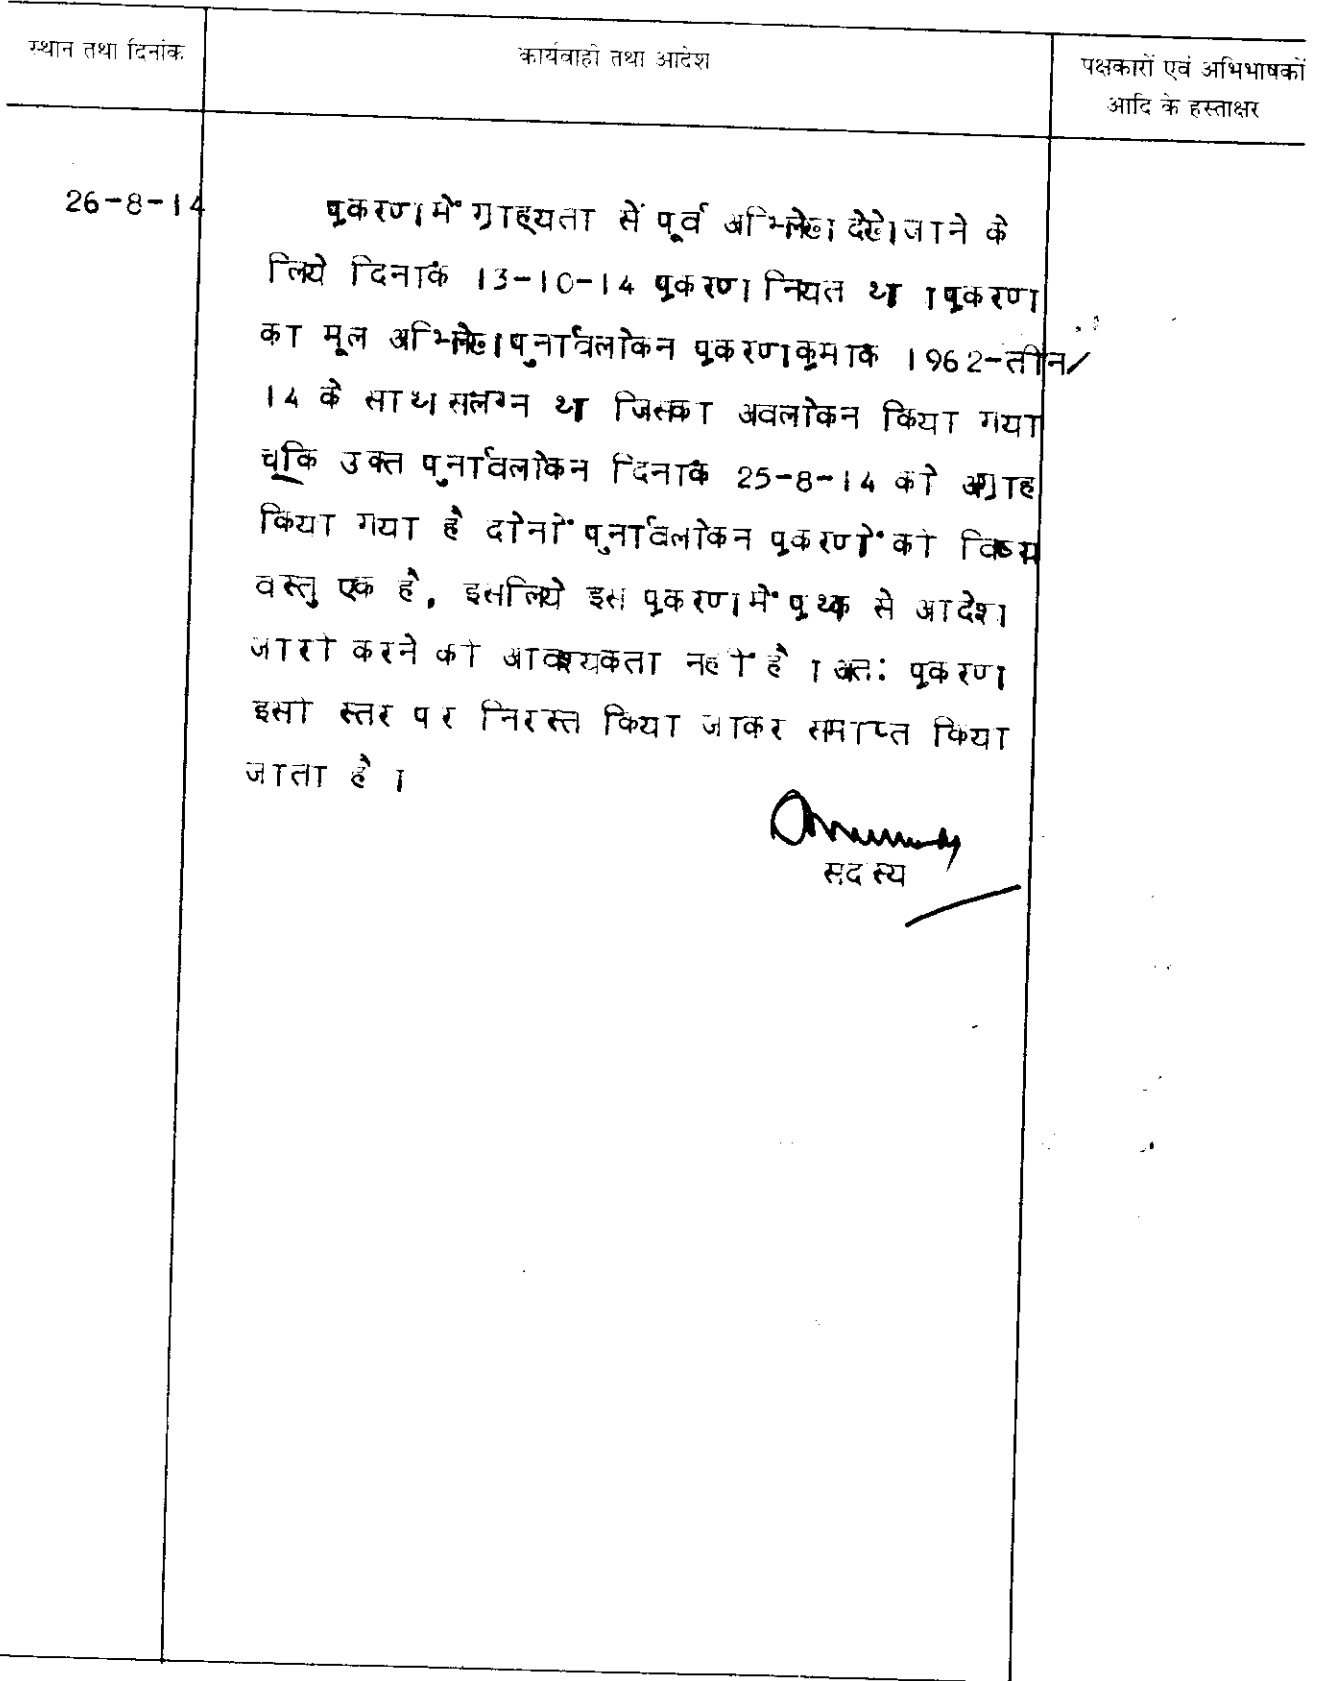 स्थान तथा दिनांक
कार्यवाही तथा आदेश
पक्षकारों एवं अभिभाषकों
आदि के हस्ताक्षर
26-8-14
प्रकरण में ग्राह्यता सें पूर्व अभिलेख देखे जाने के
लिये दिनांक 13-10-14 प्रकरण नियत था । प्रकरण
का मूल अभिलेख पुनर्विलोकन प्रकरण क्रमांक 1962-तीन/
14 के साथ संलग्न था जिसका अवलोकन किया गया
चूंकि उक्त पुनर्विलोकन दिनांक 25-8-14 को अग्राह
किया गया है दोनों पुनर्विलोकन प्रकरणों की विषय
वस्तु एक है, इसलिये इस प्रकरण में पृथक से आदेश
जारी करने की आवश्यकता नहीं है । अतः प्रकरण
इसी स्तर पर निरस्त किया जाकर समाप्त किया
जाता है ।
सदस्य